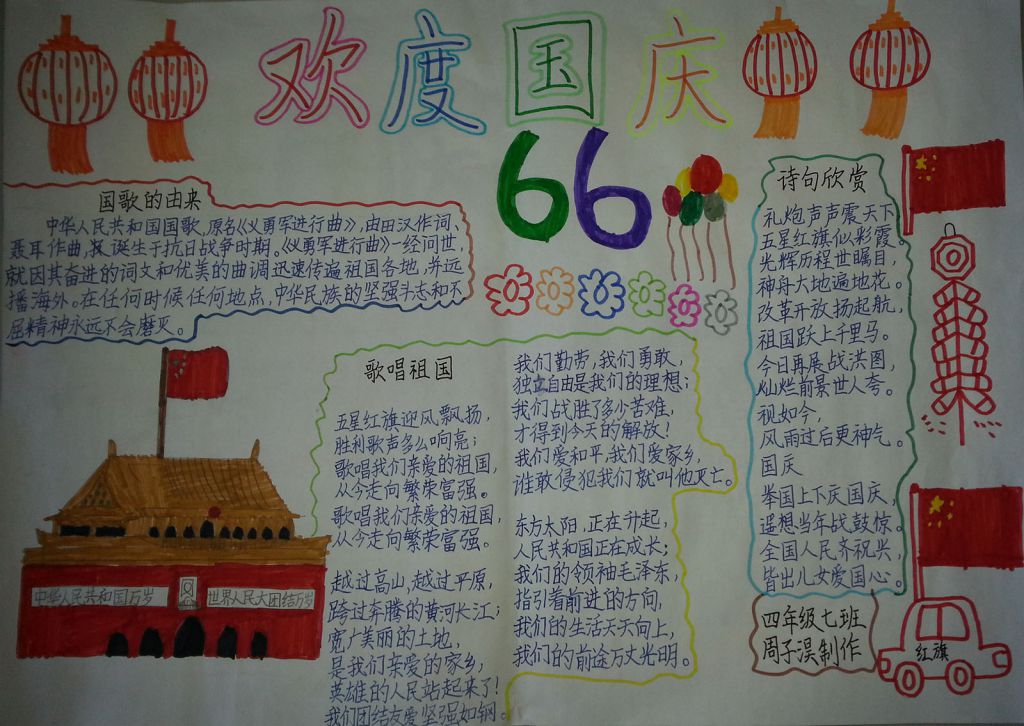 欢度国庆
66
国歌的由来
中华人民共和国国歌,原名《义勇军进行曲》,由田汉作词、
聂耳作曲,诞生于抗日战争时期。《义勇军进行曲》一经问世,
就因其奋进的词文和优美的曲调迅速传遍祖国各地,并远
播海外。在任何时候任何地点,中华民族的坚强斗志和不
屈精神永远不会磨灭。
歌唱祖国
五星红旗迎风飘扬,
胜利歌声多么响亮;
歌唱我们亲爱的祖国,
从今走向繁荣富强。
歌唱我们亲爱的祖国,
从今走向繁荣富强。
越过高山,越过平原,
跨过奔腾的黄河长江;
宽广美丽的土地,
是我们亲爱的家乡,
英雄的人民站起来了!
我们团结友爱坚强如钢。
我们勤劳,我们勇敢,
独立自由是我们的理想;
我们战胜了多少苦难,
才得到今天的解放!
我们爱和平,我们爱家乡,
谁敢侵犯我们就叫他灭亡。
东方太阳,正在升起,
人民共和国正在成长;
我们的领袖毛泽东,
指引着前进的方向,
我们的生活天天向上,
我们的前途万丈光明。
诗句欣赏
礼炮声声震天下
五星红旗似彩霞。
光辉历程世瞩目,
神舟大地遍地花。
改革开放扬起航,
祖国跃上千里马。
今日再展战洪图,
灿烂前景世人夸。
视如今,
风雨过后更神气。
国庆
举国上下庆国庆,
遥想当年战鼓惊。
全国人民齐祝兴,
皆出儿女爱国心。
四年级七班
周子淏制作
中华人民共和国万岁
世界人民大团结万岁
红旗